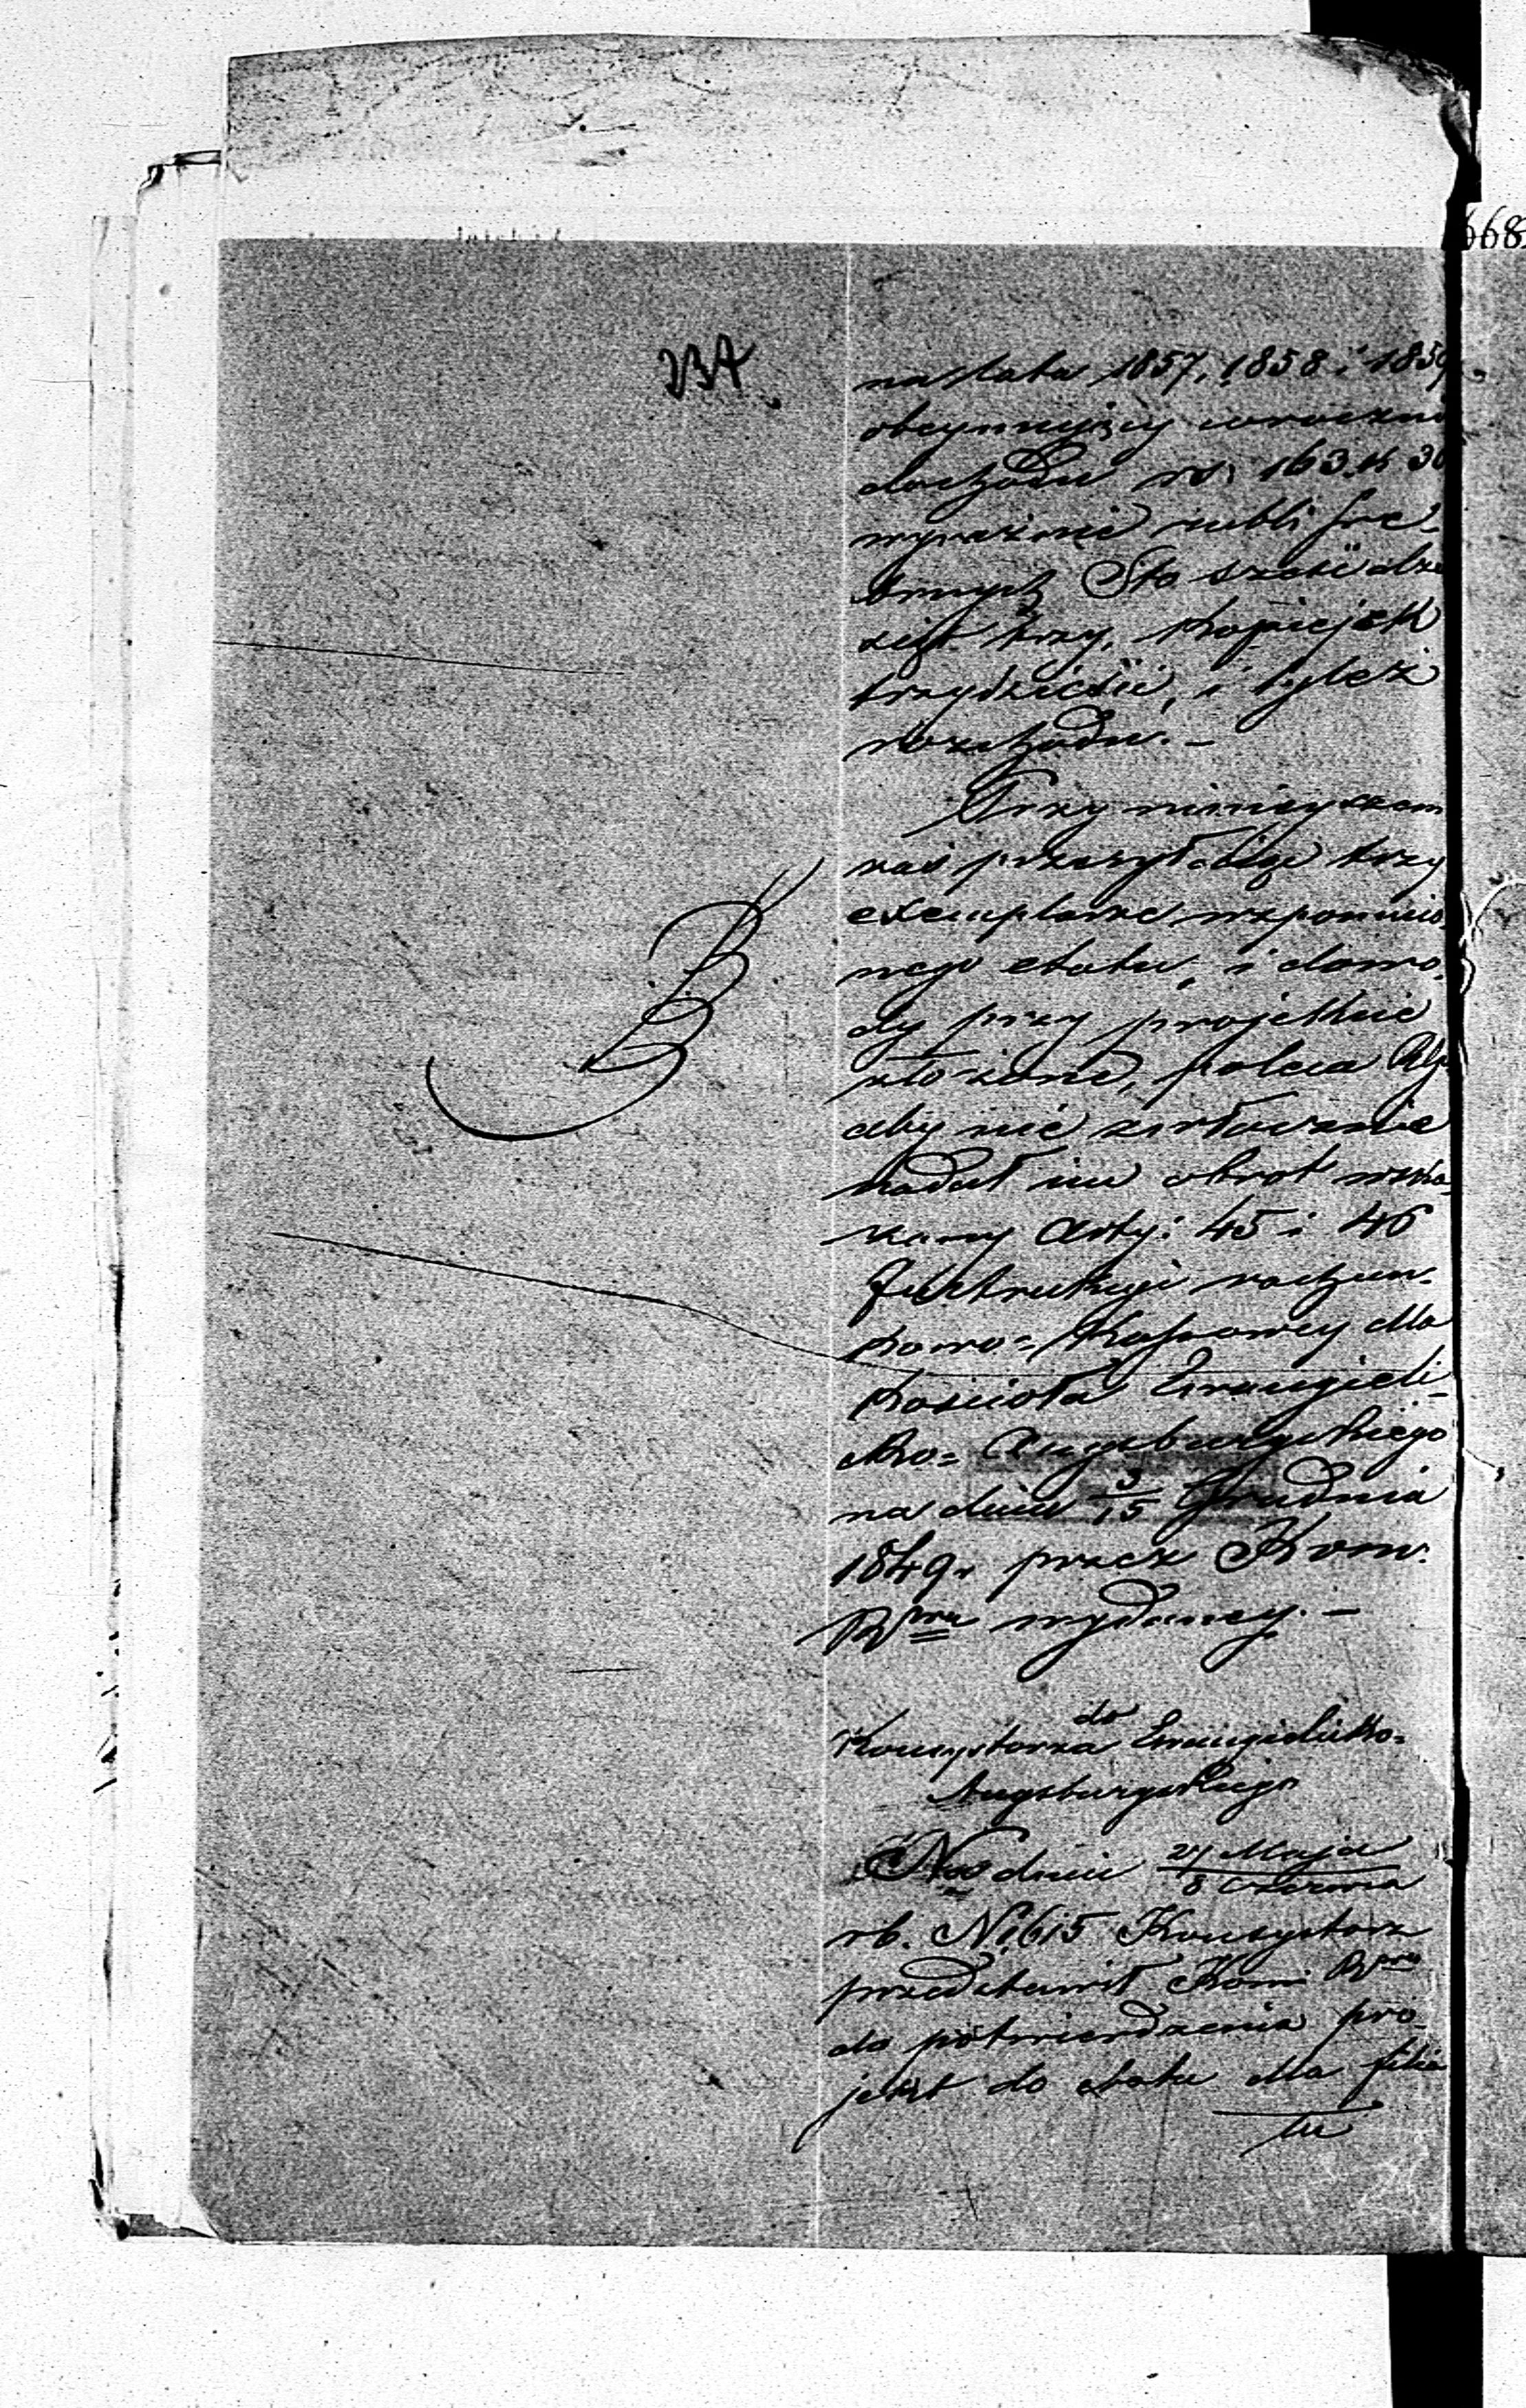 668
234
na lata 1857, 1858 i 1859
obeymujący w roczni
dochodu rs. 163 k 30
wyraźnie rubli sre-
brnych Sto sześćdzie
siąt trzy, kopiejek
trzydzieści, i tyleż
rozchodu. –
Przy niniejszem
zaś przesyłając trzy
exemplarze wspomnio-
nego etatu, i dowo-
dy przy projekcie
złożone, poleca
aby nie zwłocznie
nadał im obrot wska-
zany Arty: 45 i 46
Instrukcyi rachun-
kowo-Kassowey dla
Kościoła Ewangieli-
cko-Augsburgskiego
na dniu 3/15 Grudnia
1849 r. przez Kom.
Rwą wydaney. –
do
Konsystorza Ewangielicko-
Augsburgskiego
Na dniu 27 Maja / 8 Czerwca
rb. N 1615 Konsystorz
przedstawił Kom Rwej
do potwierdzenia pro-
jekt do etatu dla filia
łu